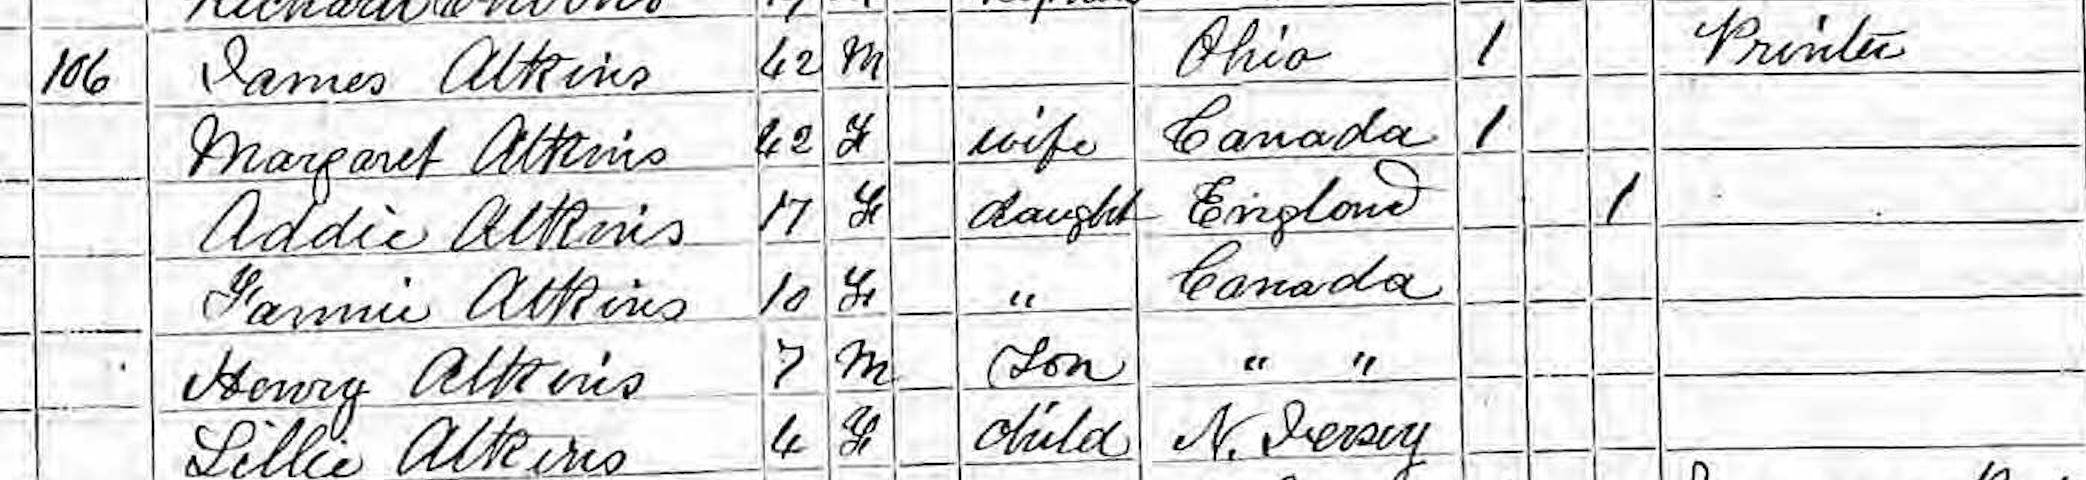 106 James Atkins 42 M Ohio 1 Printer
Margaret Atkins 42 F wife Canada 1
Addie Atkins 17 F daught England 1
Fannie Atkins 10 F " Canada
Henry Atkins 7 M Son " "
Lillie Atkins 4 F child N. Jersey